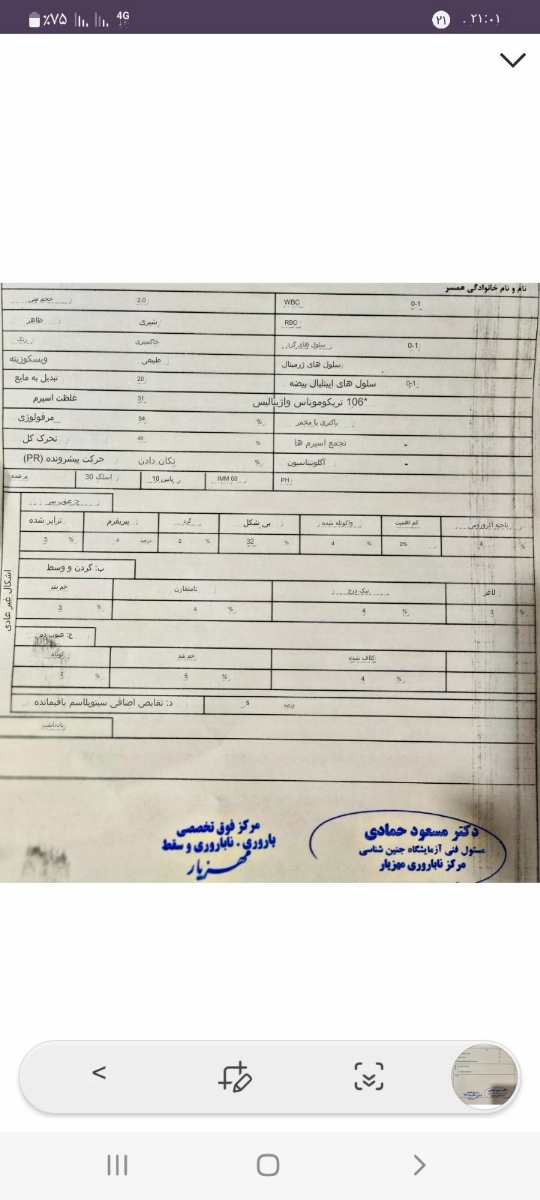 ٪۷۵ 4G ۲۱ ۲۱:۰۱
نام و نام خانوادگی همسر
حجم منی 2.0 WBC 0-1
ظاهر شیری RBC
رنگ خاکستری سلول های گرد 0-1
ویسکوزیته طبیعی سلول های ژرمینال
تبدیل به مایع 20 سلول های اپیتلیال بیضه 0-1
غلظت اسپرم 31 106* تریکوموناس واژینالیس
مرفولوژی 94 % باکتری یا مخمر
تحرک کل 46 % تجمع اسپرم ها -
حرکت پیشرونده (PR) تکان دادن % آگلوتیناسیون -
اسلگ 30 پاس 10 IMM 60 PH
ج: عیوب سر
ناحیه آکروزومی کم اهمیت واکوئله شده بی شکل گرد پیریفرم ترایر شده
4 % 2% 4 % 32 % 2 % 4 درصد 3 %
اشکال غیر عادی
ب: گردن و وسط
لاغر نامتقارن خم شد
3 % 4 % 4 % 3 %
ج: عیوب دم
کلاف شده خم شد کوتاه
4 % 5 % 3 %
د: نقایص اضافی سیتوپلاسم باقیمانده 5 درصد
یادداشت
دکتر مسعود حمادی
مسئول فنی آزمایشگاه جنین شناسی
مرکز ناباروری مهزیار
مرکز فوق تخصصی
باروری، ناباروری و سقط
مهزیار